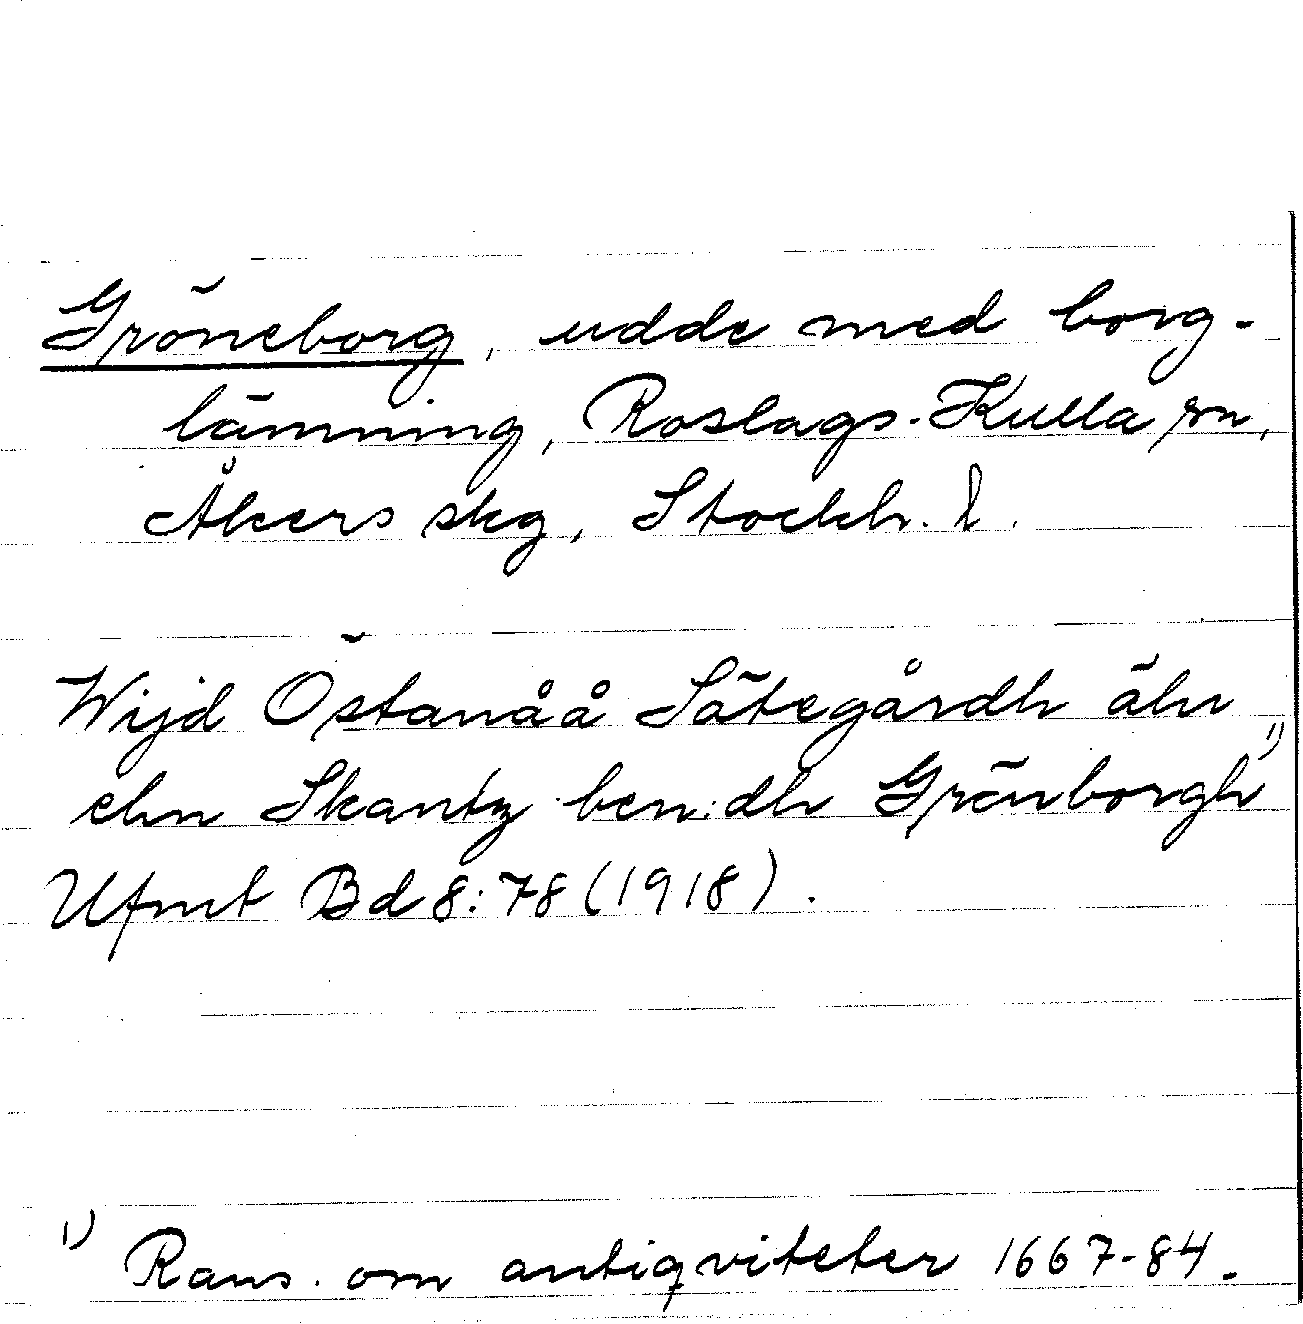 Gröneborg, udde med borg-
lämning, Roslags-Kulla sn,
Åkers skg, Stockh. l.
Wijd Östanåå Sätegårdh ähr
ehn Skantz ben:dh Grönborgh 1)
Ufmt Bd 8:78 (1918).
1) Rans. om antiqviteter 1667-84.